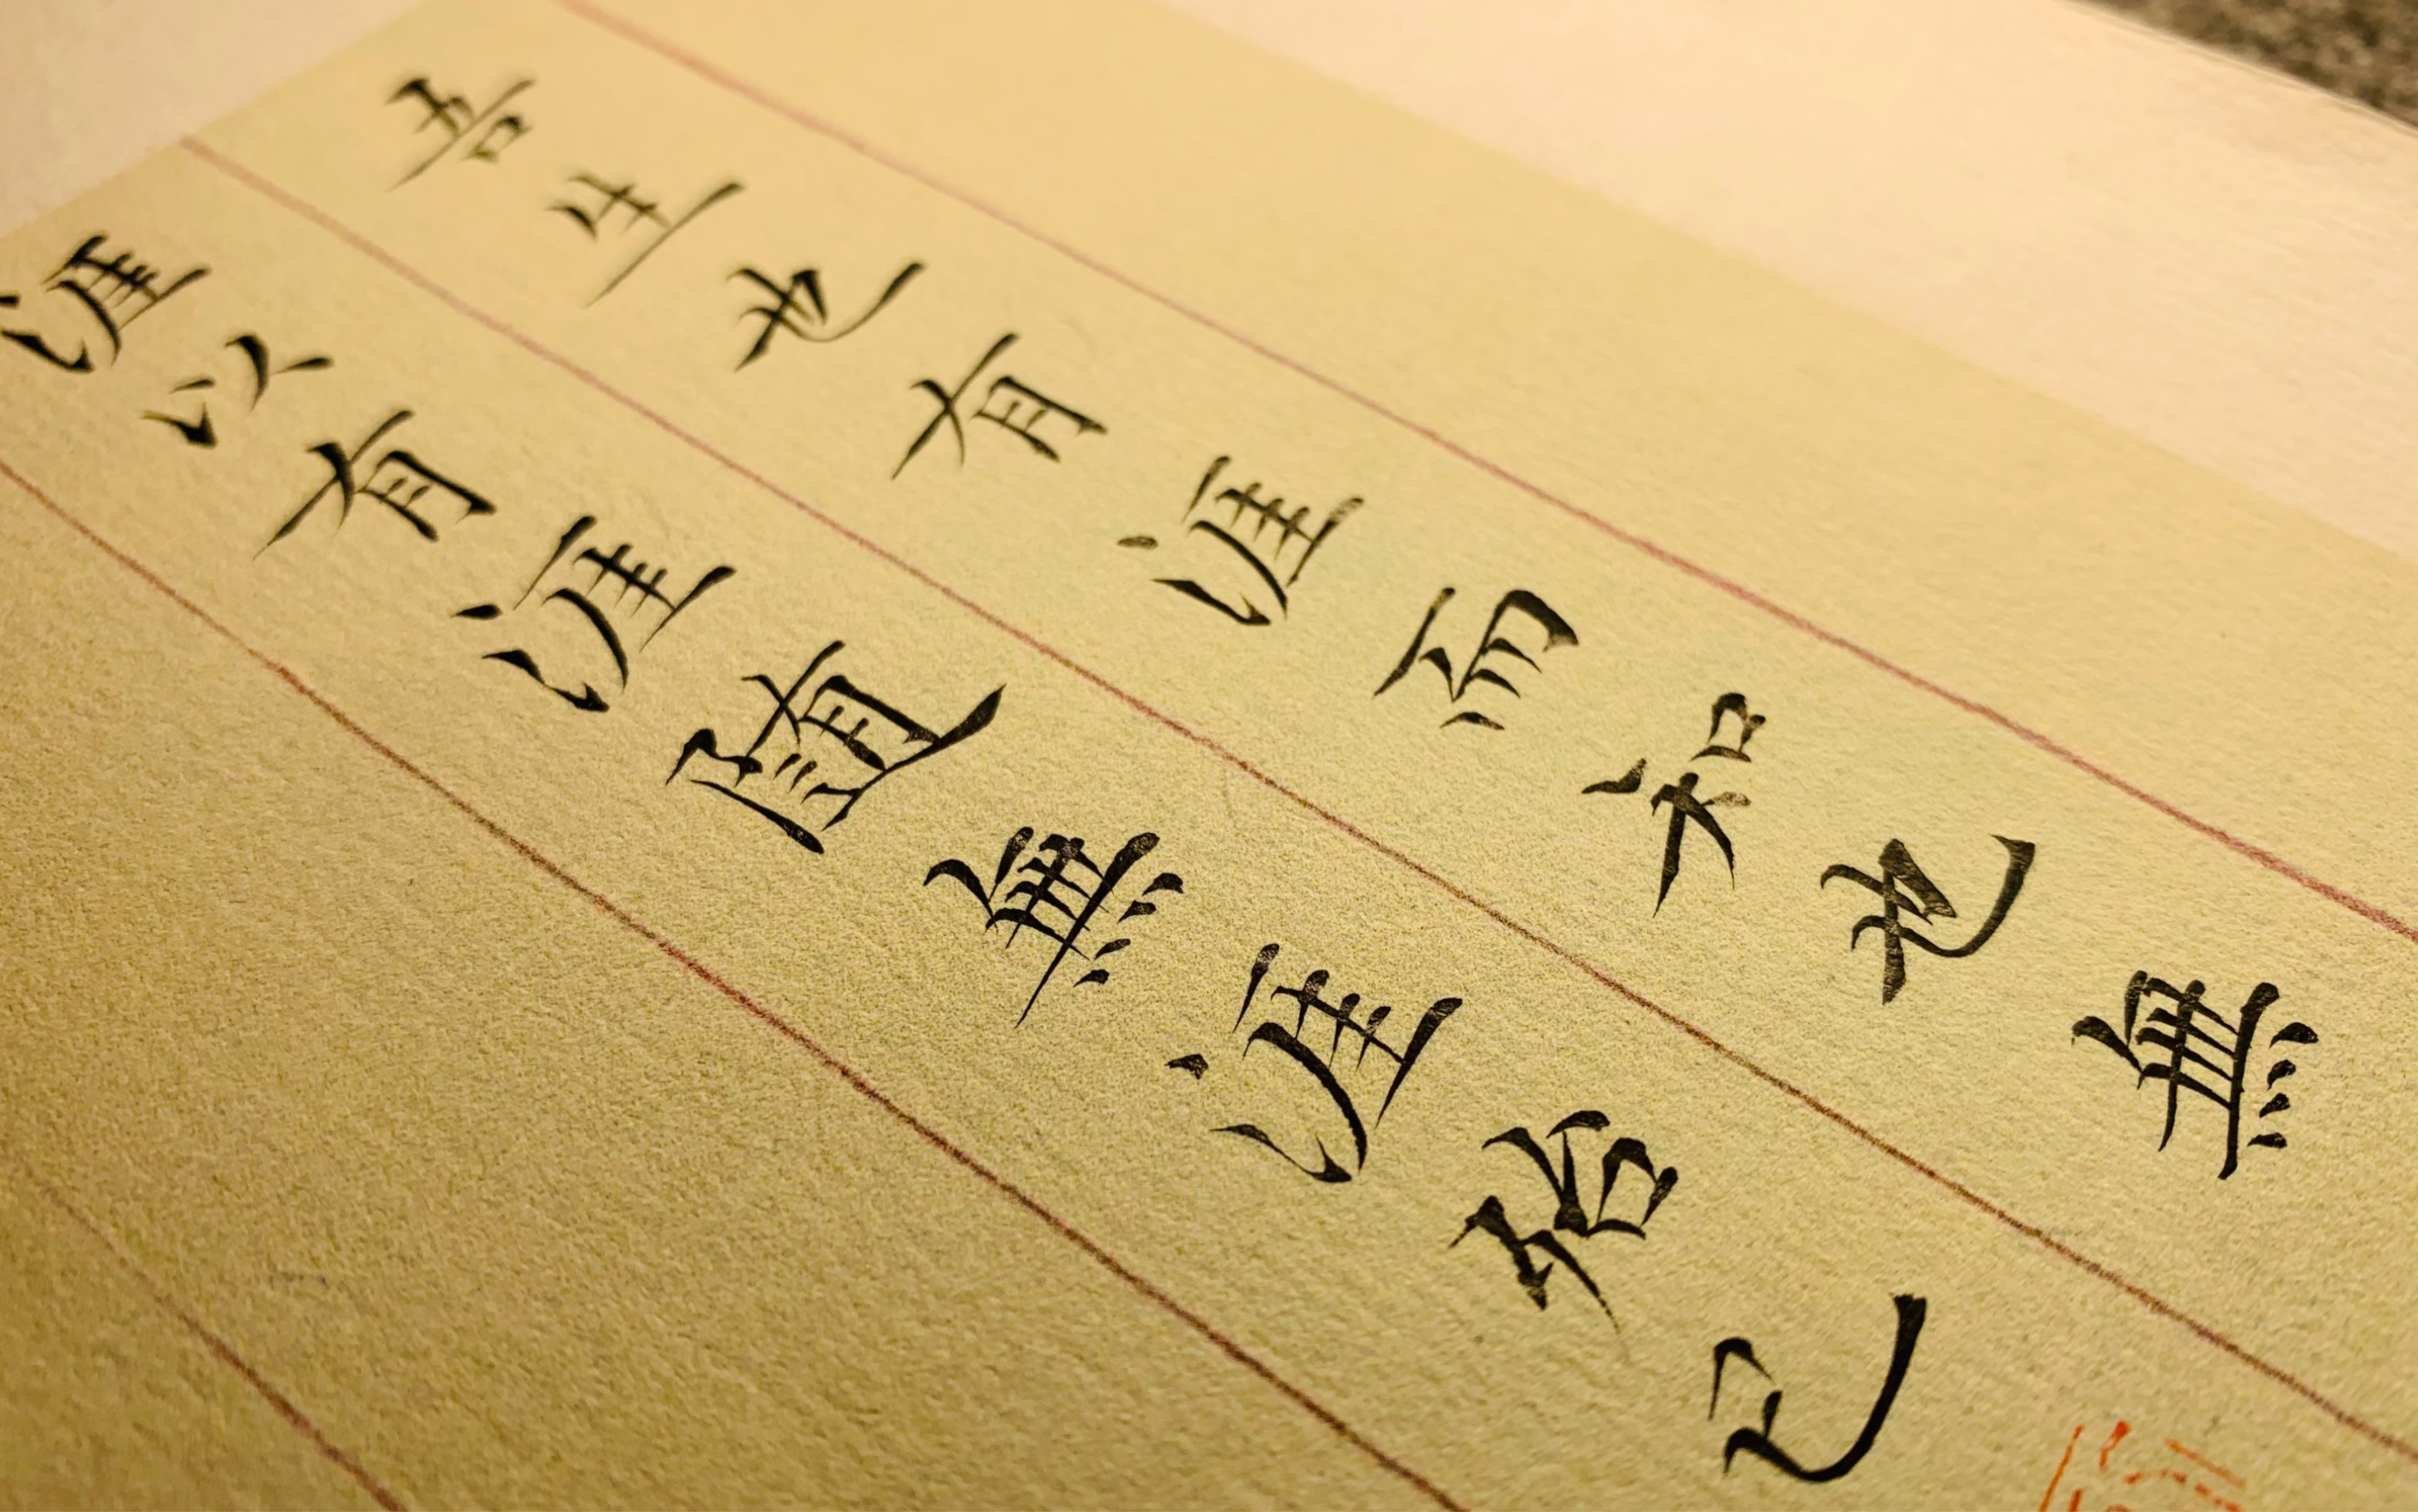 吾生也有涯而知也無
涯以有涯随無涯殆已